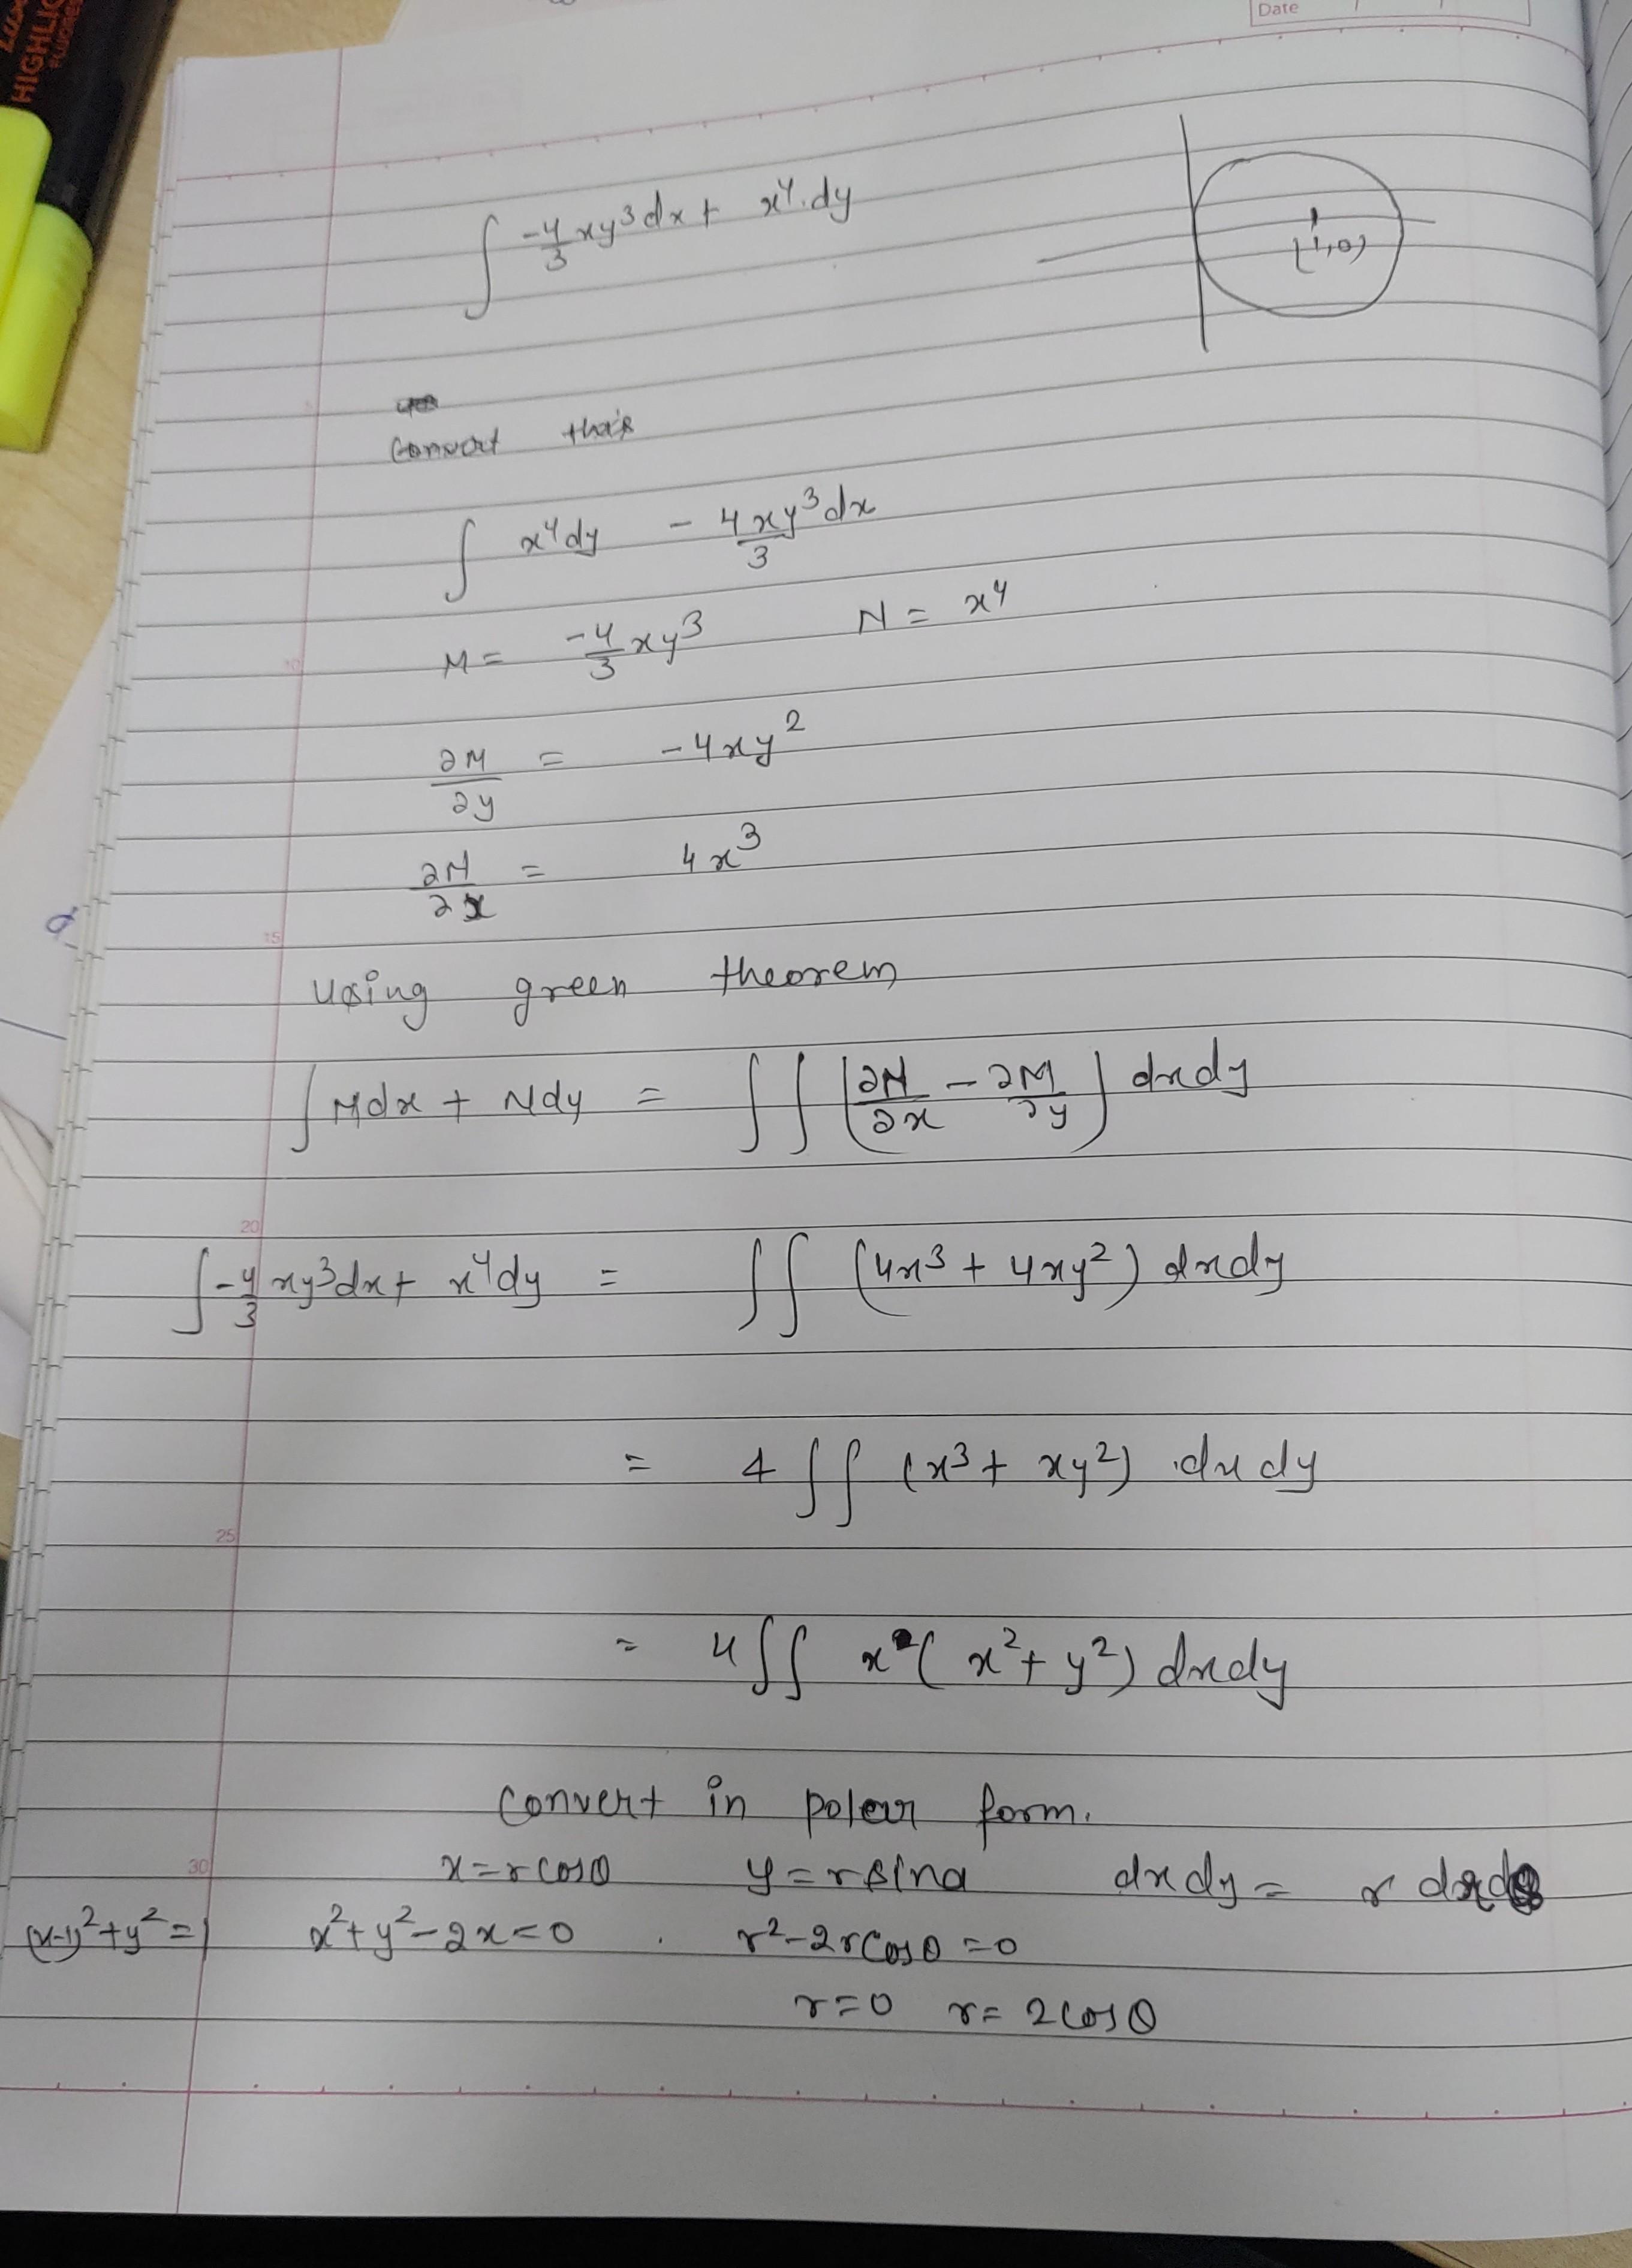 HIGHLIG
Date
∫ -4/3 xy³dx + x⁴.dy
(1,0)
Convert this
∫ x⁴dy - 4xy³dx/3
M = -4/3 xy³ N = x⁴
10
∂M/∂y = -4xy²
∂N/∂x = 4x³
15
Using green theorem
∫Mdx + Ndy = ∫∫ (∂N/∂x - ∂M/∂y) dxdy
20
∫-4/3 xy³dx + x⁴dy = ∫∫ (4x³ + 4xy²) dxdy
= 4 ∫∫ (x³ + xy²) .dx dy
25
= 4∫∫ x ( x² + y²) dxdy
Convert in polar form.
30
x = r cosθ y = r sinθ dxdy = r drdθ
(x-1)² + y² = 1 x² + y² - 2x = 0 . r² - 2r cosθ = 0
r = 0 r = 2cosθ